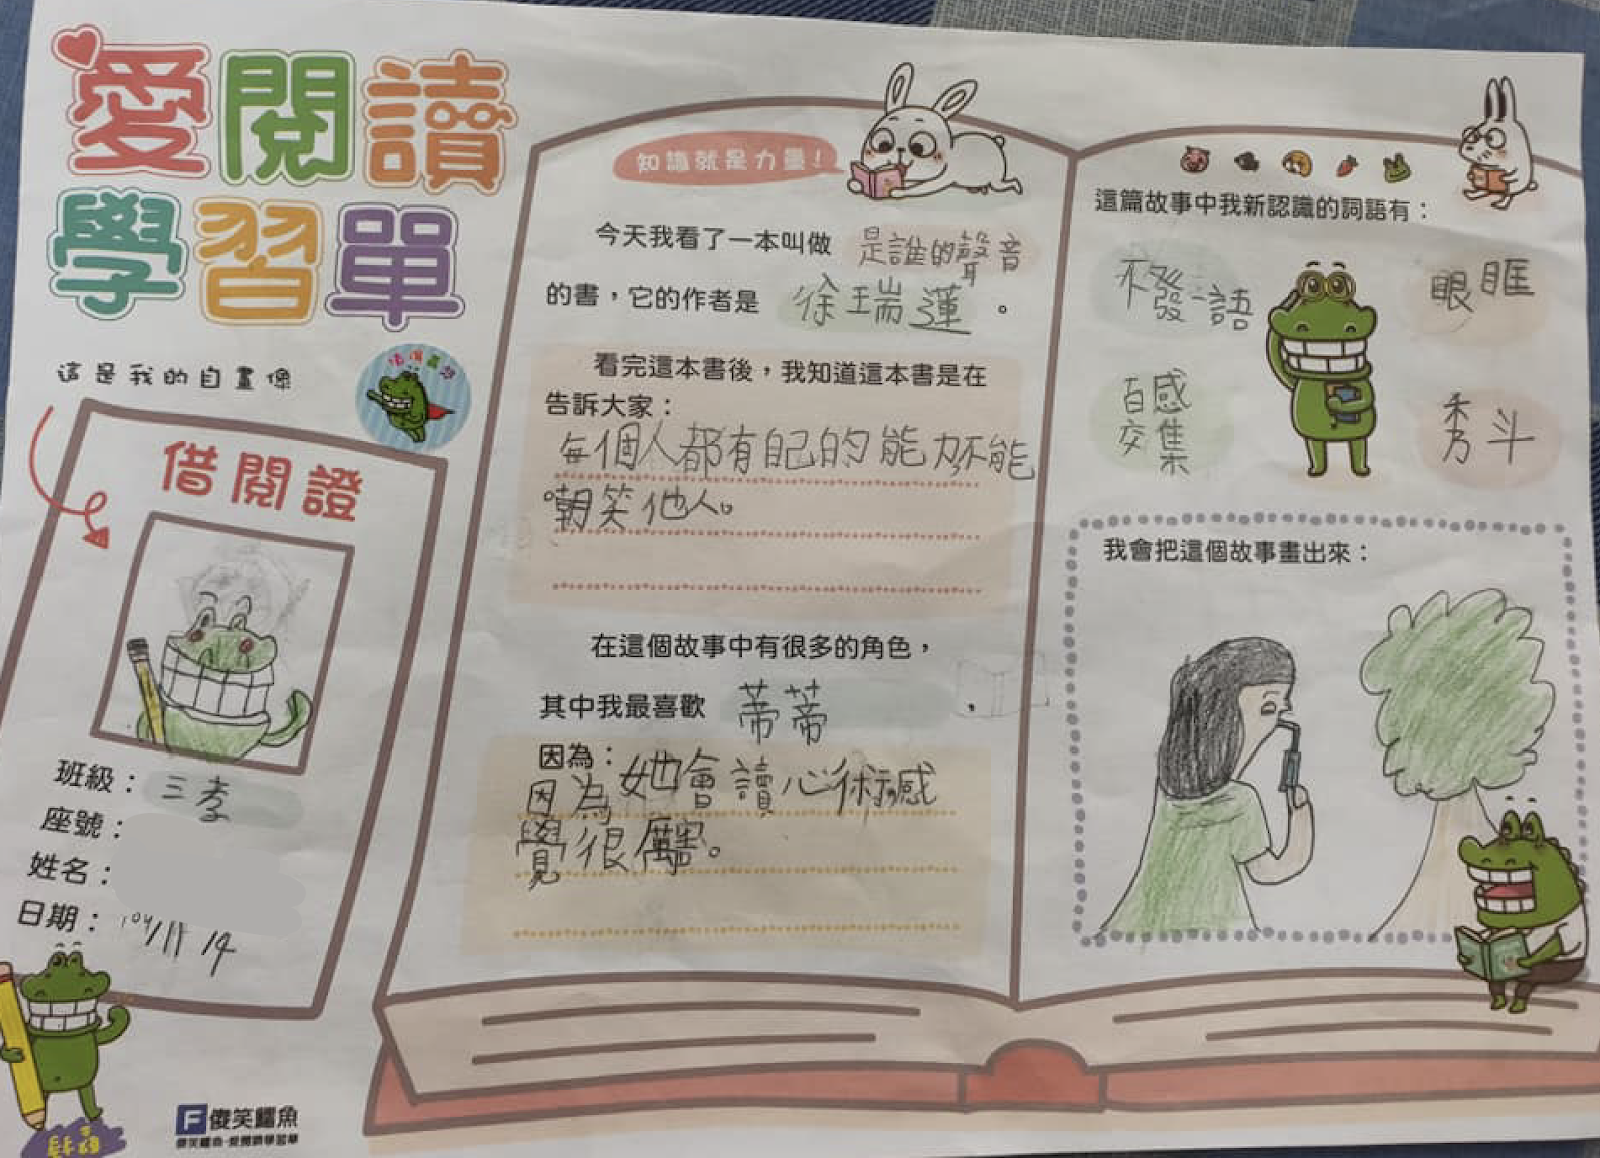 愛閱讀
學習單
這是我的自畫像
借閱證
班級：三孝
座號：
姓名：
日期：104/11/14
傻笑鱷魚
傻笑鱷魚-愛閱讀學習單
知識就是力量！
今天我看了一本叫做 是誰的聲音
的書，它的作者是 徐瑞蓮 。
看完這本書後，我知道這本書是在
告訴大家：
每個人都有自己的能力不能
嘲笑他人。
在這個故事中有很多的角色，
其中我最喜歡 蒂蒂 ，
因為：
因為她會讀心術感
覺很厲害。
這篇故事中我新認識的詞語有：
不發一語 眼眶
百感
交集
我會把這個故事畫出來：